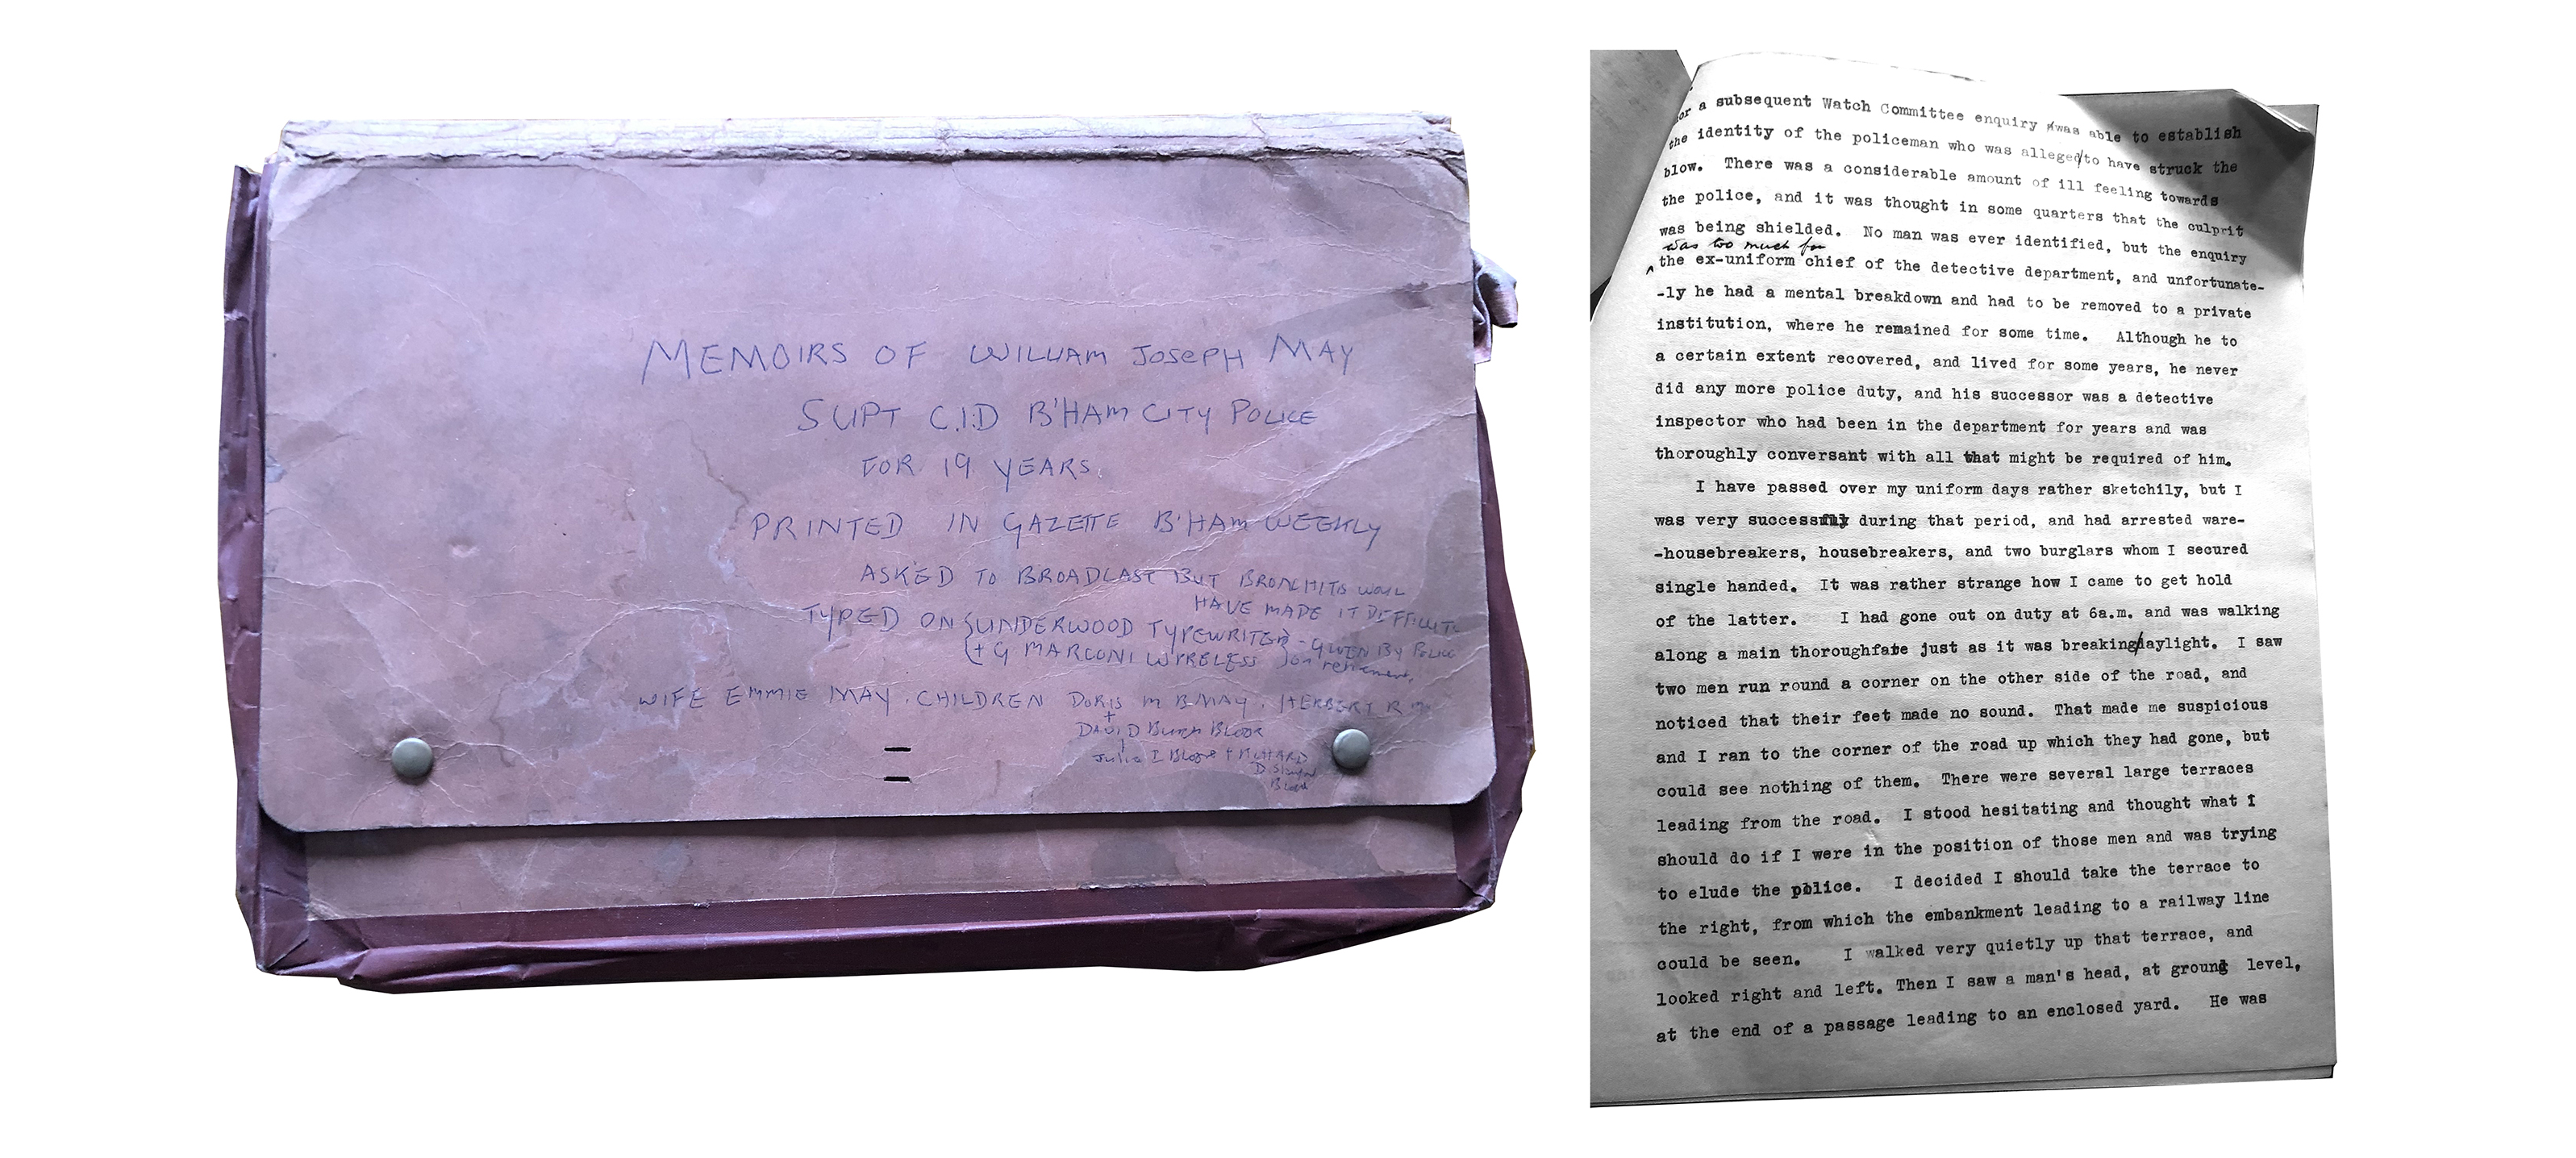 MEMOIRS OF WILLIAM JOSEPH MAY
SUPT C.I.D B'HAM CITY POLICE
FOR 19 YEARS.
PRINTED IN GAZETTE B'HAM WEEKLY
ASKED TO BROADCAST BUT BRONCHITIS WOUL
HAVE MADE IT DIFFICULT
TYPED ON UNDERWOOD TYPEWRITER - GIVEN BY POLICE
+ G MARCONI WIRELESS on retirement.
WIFE EMMIE MAY. CHILDREN DORIS M B MAY. HERBERT R
+
DAVID BLOOR
Julia I Bloor + RICHARD
D
Bloor
or a subsequent Watch Committee enquiry was able to establish
the identity of the policeman who was alleged/to have struck the
blow. There was a considerable amount of ill feeling towards
the police, and it was thought in some quarters that the culprit
was being shielded. No man was ever identified, but the enquiry
was too much for
the ex-uniform chief of the detective department, and unfortunate-
-ly he had a mental breakdown and had to be removed to a private
institution, where he remained for some time. Although he to
a certain extent recovered, and lived for some years, he never
did any more police duty, and his successor was a detective
inspector who had been in the department for years and was
thoroughly conversant with all that might be required of him.
I have passed over my uniform days rather sketchily, but I
was very successful during that period, and had arrested ware-
-housebreakers, housebreakers, and two burglars whom I secured
single handed. It was rather strange how I came to get hold
of the latter. I had gone out on duty at 6a.m. and was walking
along a main thoroughfare just as it was breaking/daylight. I saw
two men run round a corner on the other side of the road, and
noticed that their feet made no sound. That made me suspicious
and I ran to the corner of the road up which they had gone, but
could see nothing of them. There were several large terraces
leading from the road. I stood hesitating and thought what I
should do if I were in the position of those men and was trying
to elude the police. I decided I should take the terrace to
the right, from which the embankment leading to a railway line
could be seen. I walked very quietly up that terrace, and
looked right and left. Then I saw a man's head, at ground level,
at the end of a passage leading to an enclosed yard. He was